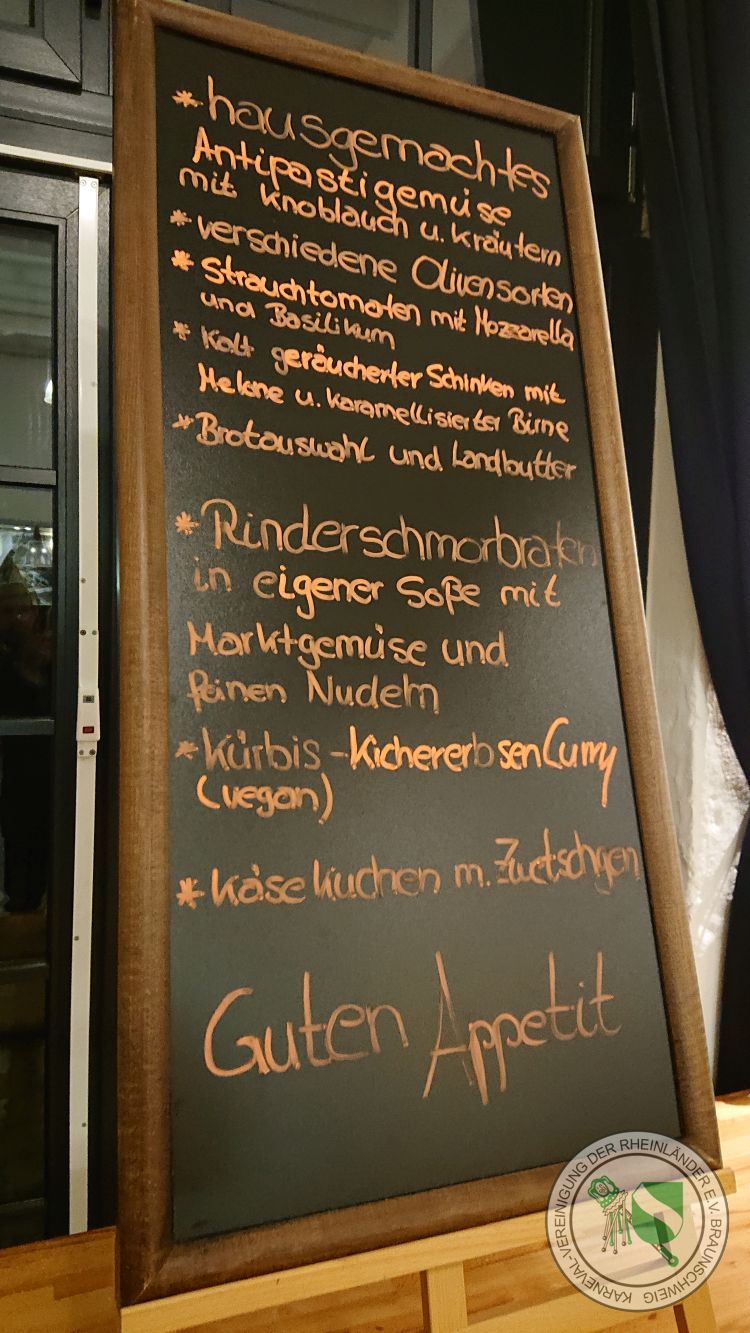 * hausgemachtes
Antipastigemüse
mit Knoblauch u. Kräutern
* verschiedene Olivensorten
* Strauchtomaten mit Mozzarella
und Basilikum
* Kalt geräucherter Schinken mit
Melone u. karamellisierter Birne
* Brotauswahl und Landbutter
* Rinderschmorbraten
in eigener Soße mit
Marktgemüse und
feinen Nudeln
* Kürbis-Kichererbsen Curry
(vegan)
* Käsekuchen m. Zwetschgen
Guten Appetit
KARNEVAL-VEREINIGUNG DER RHEINLÄNDER E.V. BRAUNSCHWEIG